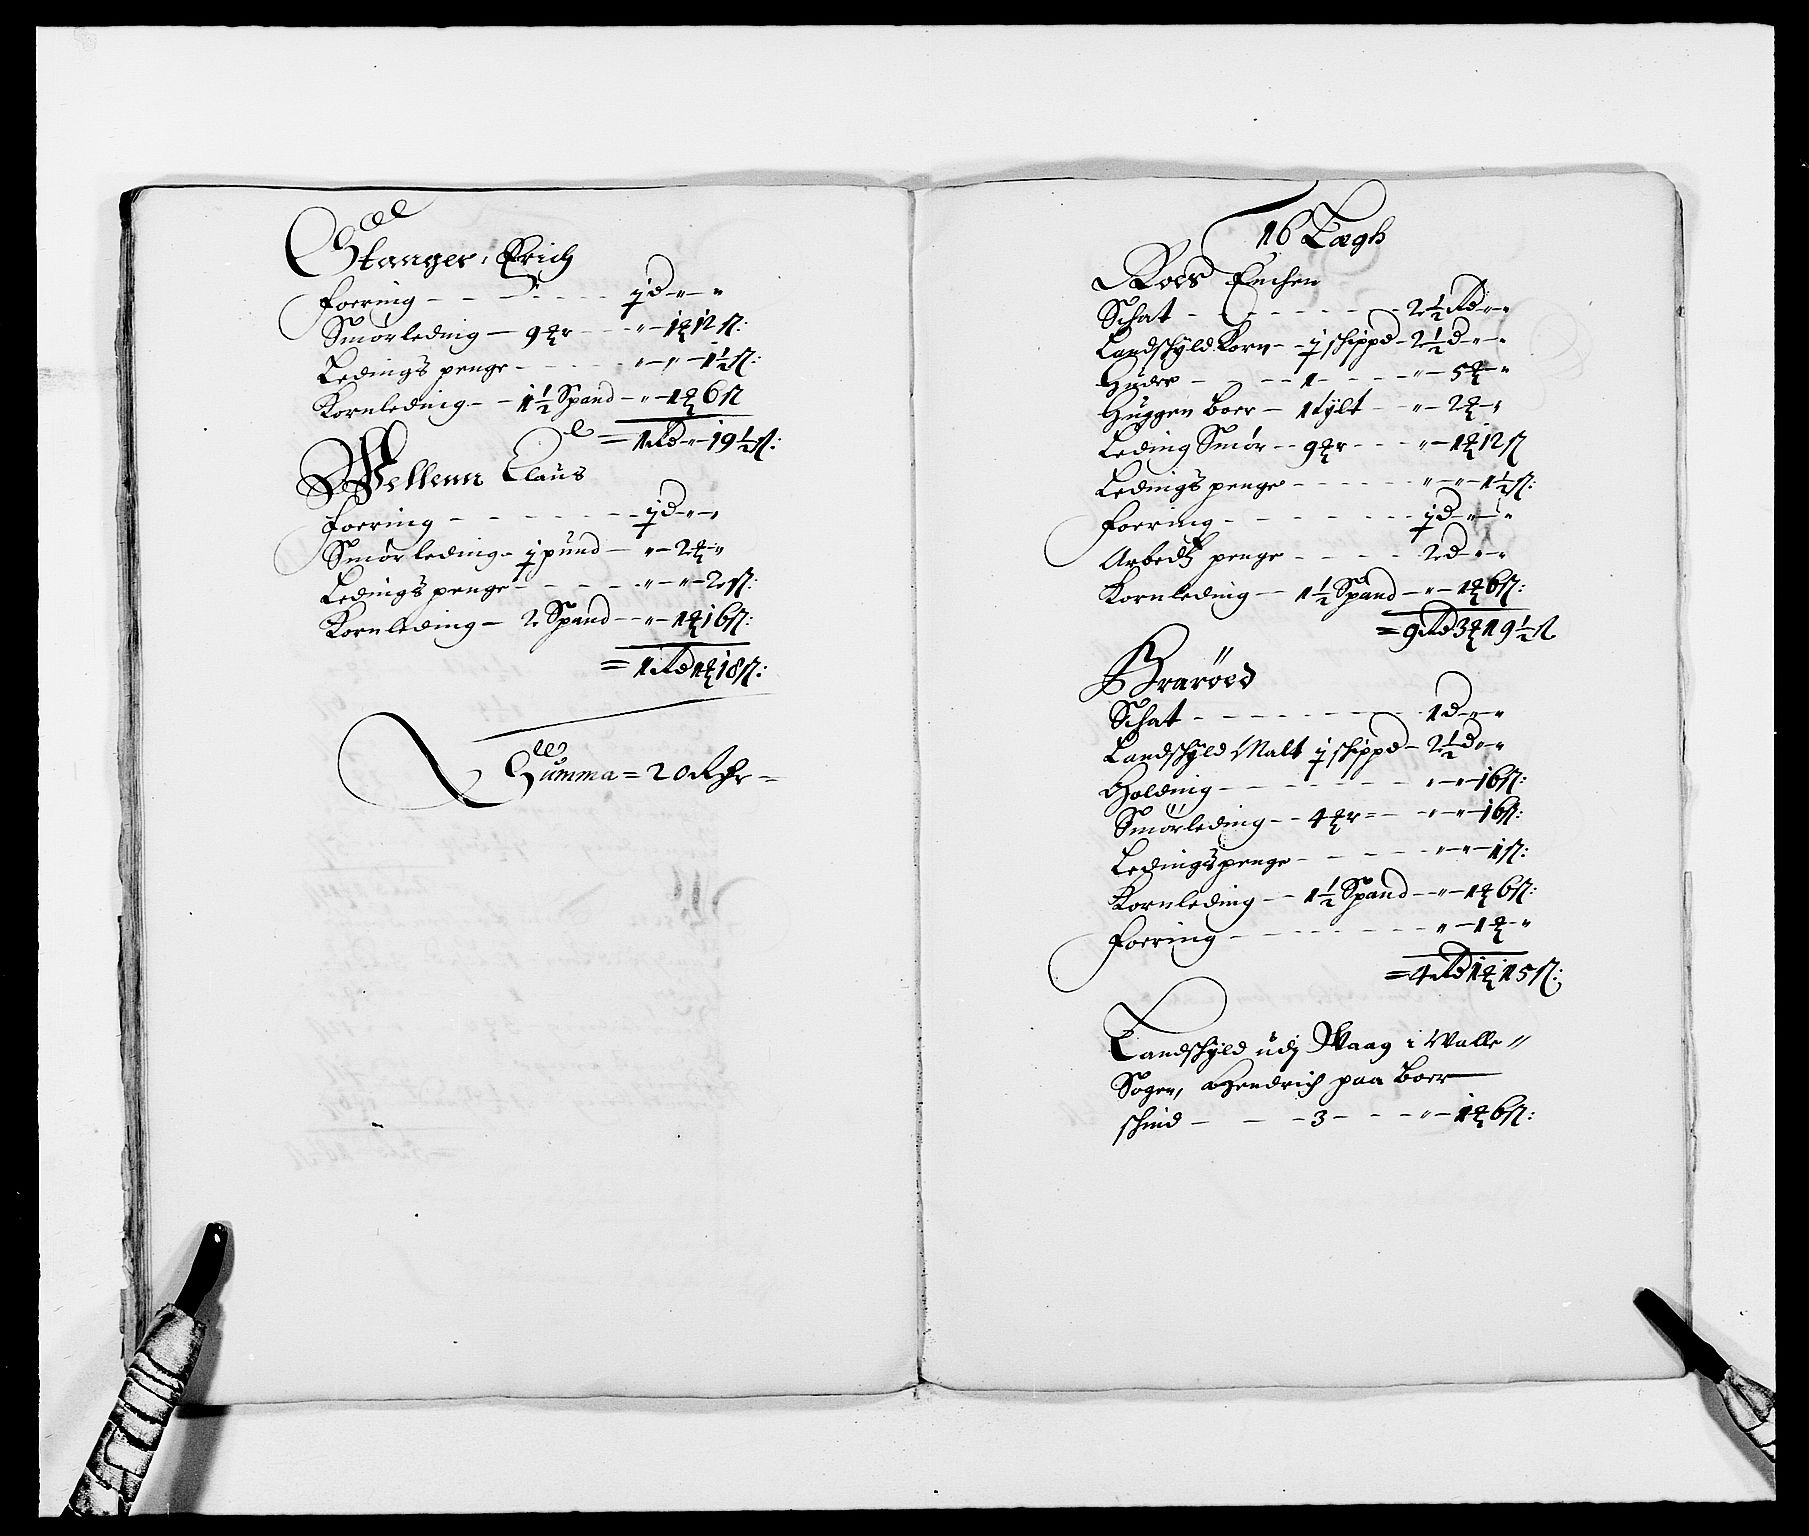 Stanger, Erich
Foering – – – – j d – „ – „
Smørleding – 9 mkr – – „ – 1 mk 12 ß:
Ledings penge – – – – „ – „ – 1½ ß:
Kornleding – – 1½ Spand – „ – 1 mk 6 ß
= 1 Rd – „ – 19½ ß:
Wellenn Claus
Foering – – – – – – j d – „ – „
Smørleding – j pund – „ – 2 mk – „
Ledings penge – – – – „ – „ – 2 ß:
Kornleding – 2 Spand – – „ – 1 mk 16 ß:
= 1 Rd 1 mk 18 ß:
Summa = 20 Rdr –
16 Lægh
Roes Enchen
Schat – – – – – – 2½ Rd – „ – „
Landschyld Korn – – j schippd – 2½ d – „ – „
Huder – – – 1 – – – – „ – 5 mk – „
Huggen Boer – 1 tylt – – „ – 2 mk – „
Leding Smør – – 9 mkr – – – „ – 1 mk 12 ß
Ledings penge – – – – – „ – „ – 1½ ß:
Foering – – – – – – j d – „ – „
Arbedtz penge – – – – 2 d – „ – „
Kornleding – – 1½ Spand – „ – 1 mk 6 ß:
= 9 Rd 3 mk 19½ ß
Brarøed
Schat – – – – – – – 1 d – „ – „
Landschyld Malt j schippd – 2½ d – „ – „
Holding – – – – – – „ – „ – 16 ß:
Smørleding – – 4 mkr – – „ – „ – 16 ß:
Ledingspenge – – – – – „ – „ – 1 ß:
Kornleding – – 1½ Spand – – „ – 1 mk 6 ß:
Foering – – – – – – „ – 1 mk – „
= 4 Rd 1 mk 15 ß:
Landschyld udj Waag i Walle
Sogen, Hendrich paa Boer
schind – – – 3 – – – „ – 1 mk 6 ß: